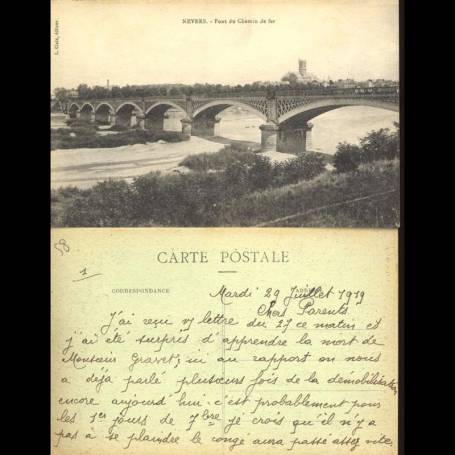 NEVERS. - Pont du Chemin de fer
58
1
CARTE POSTALE
CORRESPONDANCE
Mardi 29 Juillet 1919
Chers Parents
J'ai reçu v/ lettre du 27 ce matin et
j'ai été surpris d'apprendre la mort de
Monsieur Gravet, ici au rapport on nous
a déjà parlé plusieurs fois de la démobilisation
encore aujourd'hui c'est probablement pour
les 1er jours de 7bre je crois qu'il n'y a
pas à se plaindre le congé aura passé assez vite